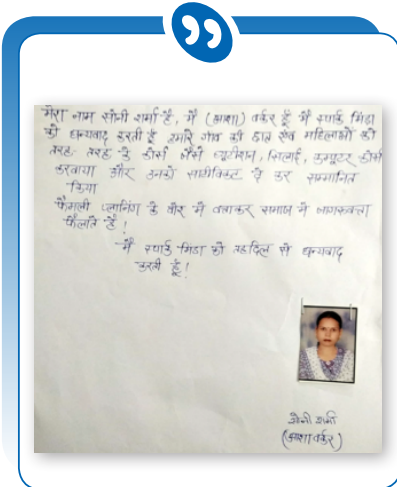 मेरा नाम सोनी शर्मा है, मैं (आशा) वर्कर हूँ मैं स्पार्क मिंडा
को धन्यवाद करती हूँ हमारे गाँव की छात्र एवं महिलाओं को
तरह-तरह के कोर्स जैसे ब्यूटीशन, सिलाई, कम्प्यूटर कोर्स
करवाया और उनको सर्टिफिकेट दे कर सम्मानित
किया
फैमली प्लानिंग के बारे में बताकर समाज में जागरूकता
फैलाते है!
मैं स्पार्क मिंडा को तहदिल से धन्यवाद
करती हूँ!
सोनी शर्मा
(आशा वर्कर)